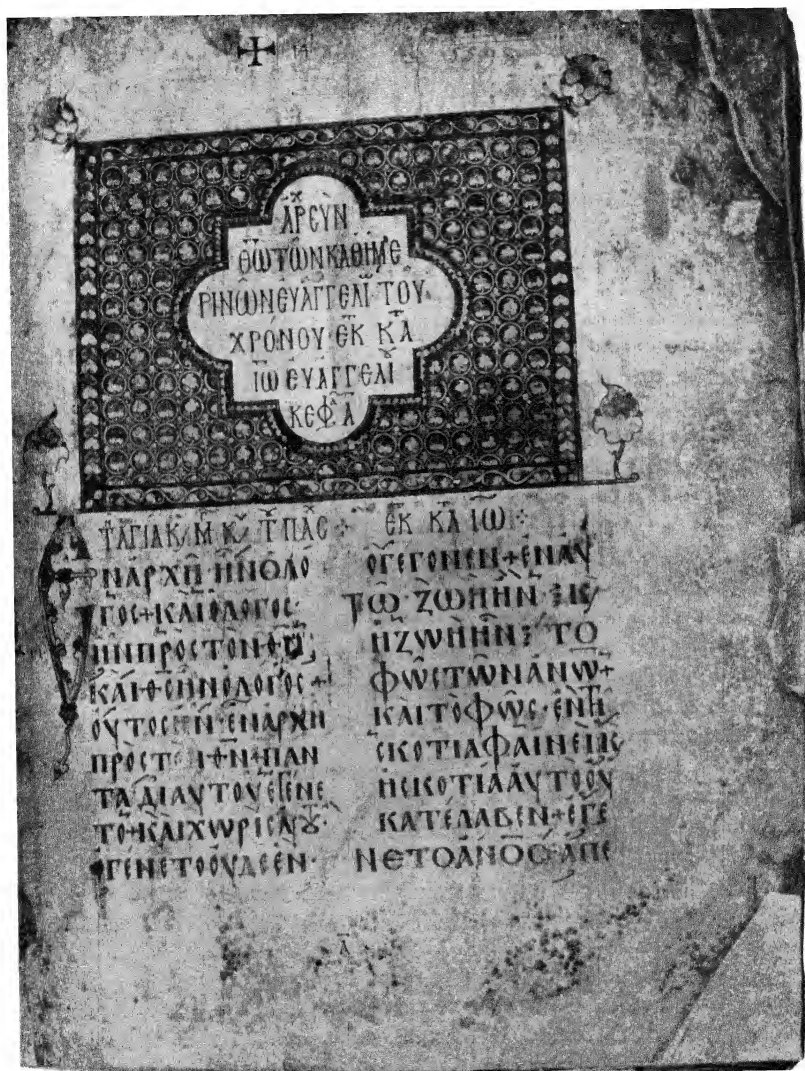 ἈΡ͞Χ ΕΥΝ
Θ͞Ω ΤῶΝ ΚΑΘΗΜΕ
ΡΙΝῶΝ ΕΥΑΓΓΕΛΙ ΤΟΥ
ΧΡΟΝΟΥ ΕΚ Κ͞Τ͞Α
Ι͞Ω ΕΥΑΓΓΕΛΙ
ΚΕΦ Α
ΤΑΓΙΑ Κ, Μ Κ, Τ ΠΑΣ ΕΚ ΚΑ ΙΩ
ΝΑΡΧΗ ΗΝ Ο ΛΟ
ΓΟC + ΚΑΙ Ο ΛΟΓΟC
ΗΝ ΠΡΟC ΤΟΝ Θ͞Ν
ΚΑΙ Θ͞C ΗΝ Ο ΛΟΓΟC +
ΟΥΤΟC ΗΝ ΕΝ ΑΡΧΗ
ΠΡΟC ΤΟΝ Θ͞Ν + ΠΑΝ
ΤΑ ΔΙ ΑΥΤΟΥ ΕΓΕΝΕ
ΤΟ + ΚΑΙ ΧΩΡΙC ΑΥΤΟΥ
ΕΓΕΝΕΤΟ ΟΥΔΕ ΕΝ
Ο ΓΕΓΟΝΕΝ + ΕΝ ΑΥ
ΤΩ ΖΩΗ ΗΝ Κ,
Η ΖΩΗ ΗΝ ΤΟ
ΦΩC ΤΩΝ ΑΝΩΝ +
ΚΑΙ ΤΟ ΦΩC ΕΝ ΤΗ
CΚΟΤΙΑ ΦΑΙΝΕΙ Κ,
Η CΚΟΤΙΑ ΑΥΤΟ ΟΥ
ΚΑΤΕΛΑΒΕΝ + ΕΓΕ
ΝΕΤΟ ΑΝΟC ΑΠΕ
Α